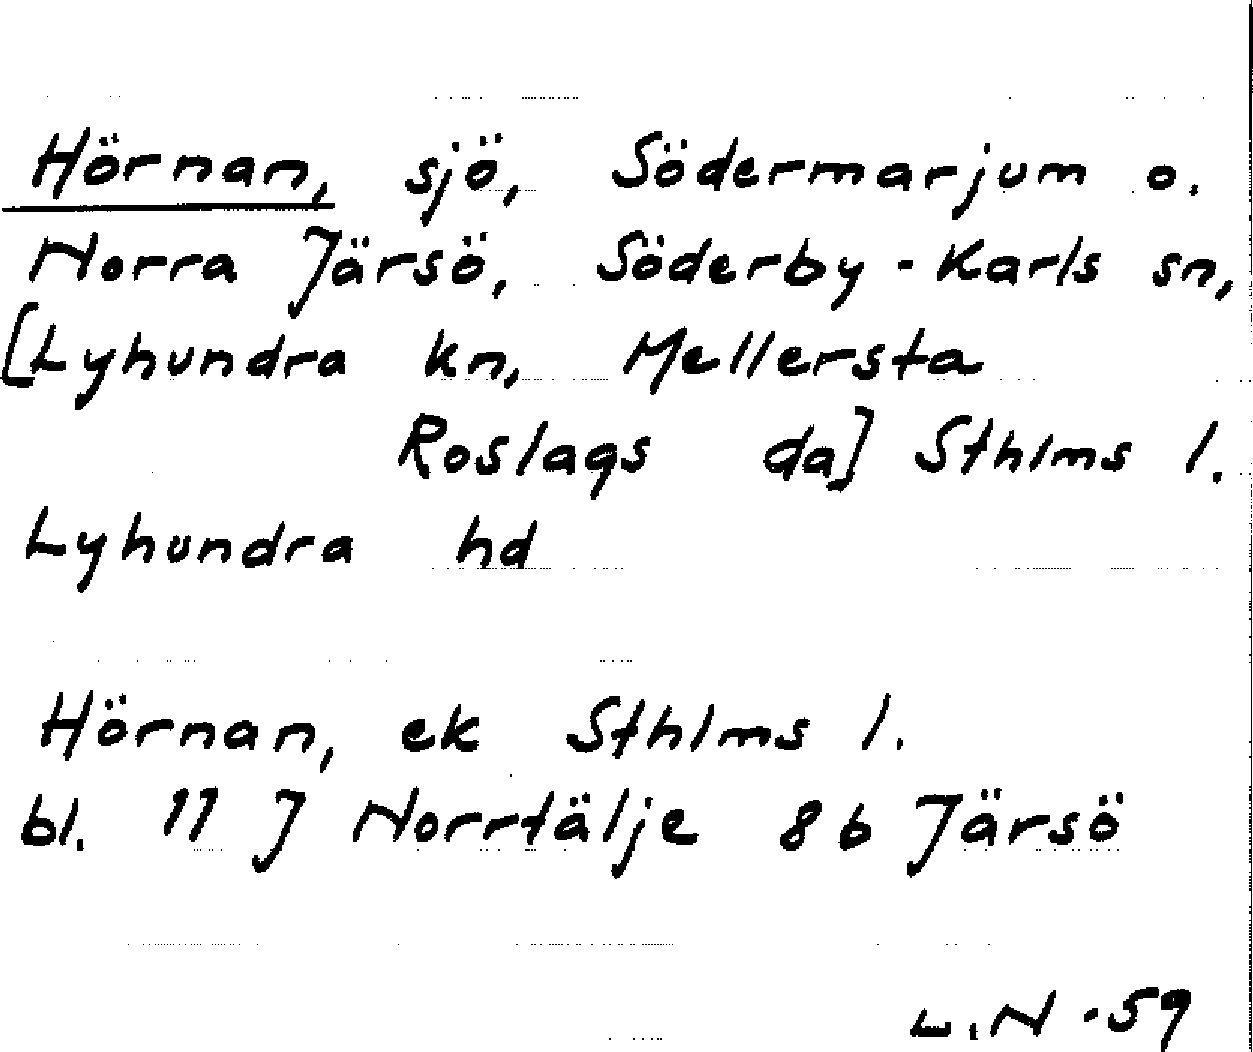 Hörnan, sjö, Södermarjum o.
Norra Järsö, Söderby-Karls sn,
[Lyhundra kn, Mellersta
Roslags da] Sthlms l.
Lyhundra hd
Hörnan, ek Sthlms l.
bl. 11 J Norrtälje 8b Järsö
L.N -59